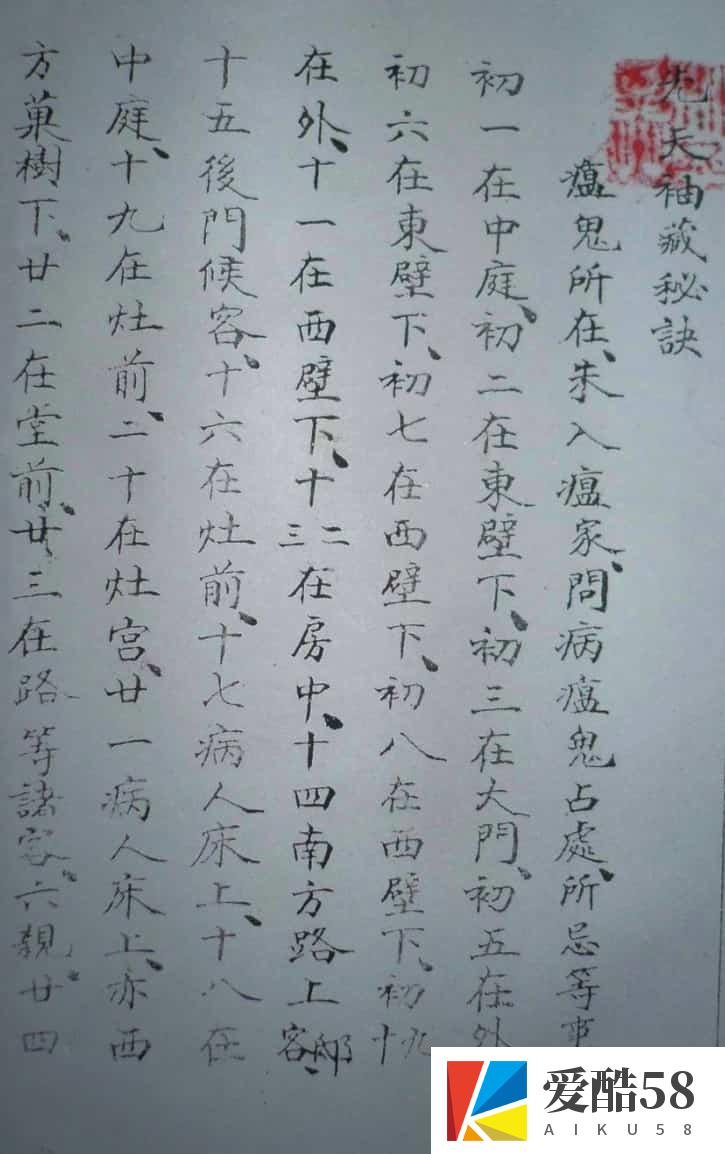 先天袖藏秘訣
瘟鬼所在、未入瘟家、問病瘟鬼占處、所忌等事
初一在中庭、初二在東壁下、初三在大門、初五在外
初六在東壁下、初七在西壁下、初八在西壁下、初九十
在外、十一在西壁下、十二三在房中、十四南方路上邸客、
十五後門候客、十六在灶前、十七病人床上、十八在
中庭、十九在灶前、二十在灶宫、廿一病人床上、亦西
方菓樹下、廿二在堂前、廿三在路等諸客、六親、廿四
爱酷58
AIKU58